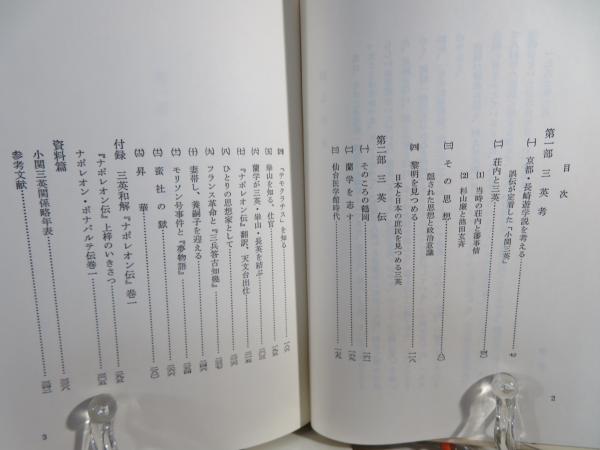 目次
第一部 三英考
(一) 京都・長崎遊学説を考える
誤伝が定着した「小関三英」
(二) 荘内と三英
(1) 当時の荘内と藩事情
(2) 杉山廉と池田玄斉
(三) その思想
隠された思想と政治意識
(四) 黎明を見つめる
日本と日本の庶民を見つめる三英
第二部 三英伝
(一) そのころの鶴岡
(二) 蘭学を志す
(三) 仙台医学館時代
2
(四) 『デモクラチス』を知る
(五) 崋山を知る、仕官
(六) 蘭学が三英・崋山・長英を結ぶ
(七) 『ナポレオン伝』翻訳、天文台出仕
(八) ひとりの思想家として
(九) フランス革命と『三兵答古知幾』
(十) 妻帯し、養嗣子を迎える
(十一) モリソン号事件と『夢物語』
(十二) 蛮社の獄
(十三) 昇華
付録 三英和解『ナポレオン伝』巻一
『ナポレオン伝』上梓のいきさつ
ナポレオン・ボナパルテ伝巻一
資料篇
小関三英関係略年表
参考文献
3